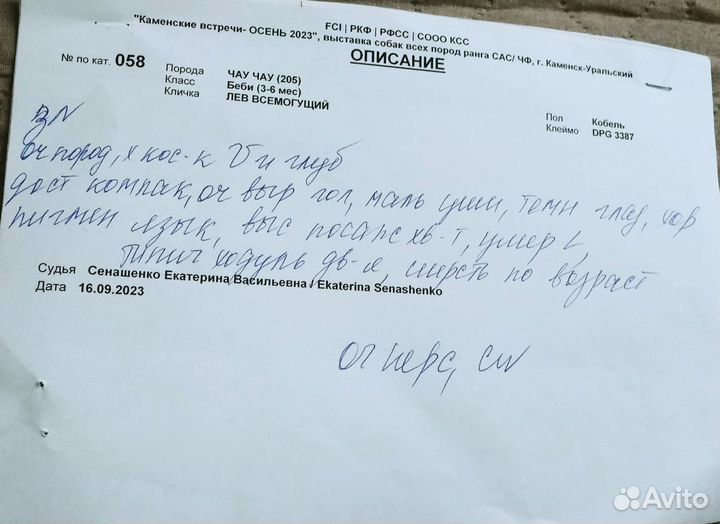 FCI | РКФ | РФСС | СООО КСС
"Каменские встречи- ОСЕНЬ 2023", выставка собак всех пород ранга САС/ ЧФ, г. Каменск-Уральский
ОПИСАНИЕ
№ по кат. 058
Порода ЧАУ ЧАУ (205)
Класс Беби (3-6 мес)
Кличка ЛЕВ ВСЕМОГУЩИЙ
Пол Кобель
Клеймо DPG 3387
оч пород, х кос-к V и глуб
дост компак, оч выр гол, мал уши, темн глаз, хор
пигмен язык, выс посаж хв-т, умер
типич ходуль дв-я, шерсть по возраст
Судья Сенашенко Екатерина Васильевна / Ekaterina Senashenko
Дата 16.09.2023
оч перс,
Avito